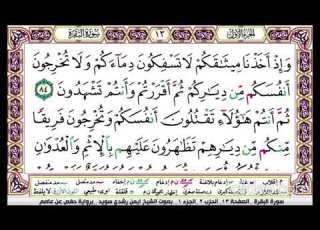 الجزء الأول ١٣ سورة البقرة
وَإِذْ أَخَذْنَا مِيثَٰقَكُمْ لَا تَسْفِكُونَ دِمَآءَكُمْ وَلَا تُخْرِجُونَ
أَنفُسَكُم مِّن دِيَٰرِكُمْ ثُمَّ أَقْرَرْتُمْ وَأَنتُمْ تَشْهَدُونَ ٨٤
ثُمَّ أَنتُمْ هَٰٓؤُلَآءِ تَقْتُلُونَ أَنفُسَكُمْ وَتُخْرِجُونَ فَرِيقًا
مِّنكُم مِّن دِيَٰرِهِمْ تَظَٰهَرُونَ عَلَيْهِم بِٱلْإِثْمِ وَٱلْعُدْوَٰنِ
سورة البقرة . الصفحة ١٣ . الحزب ٢ . الجزء ١ . بصوت الشيخ أيمن رشدي سويد . برواية حفص عن عاصم